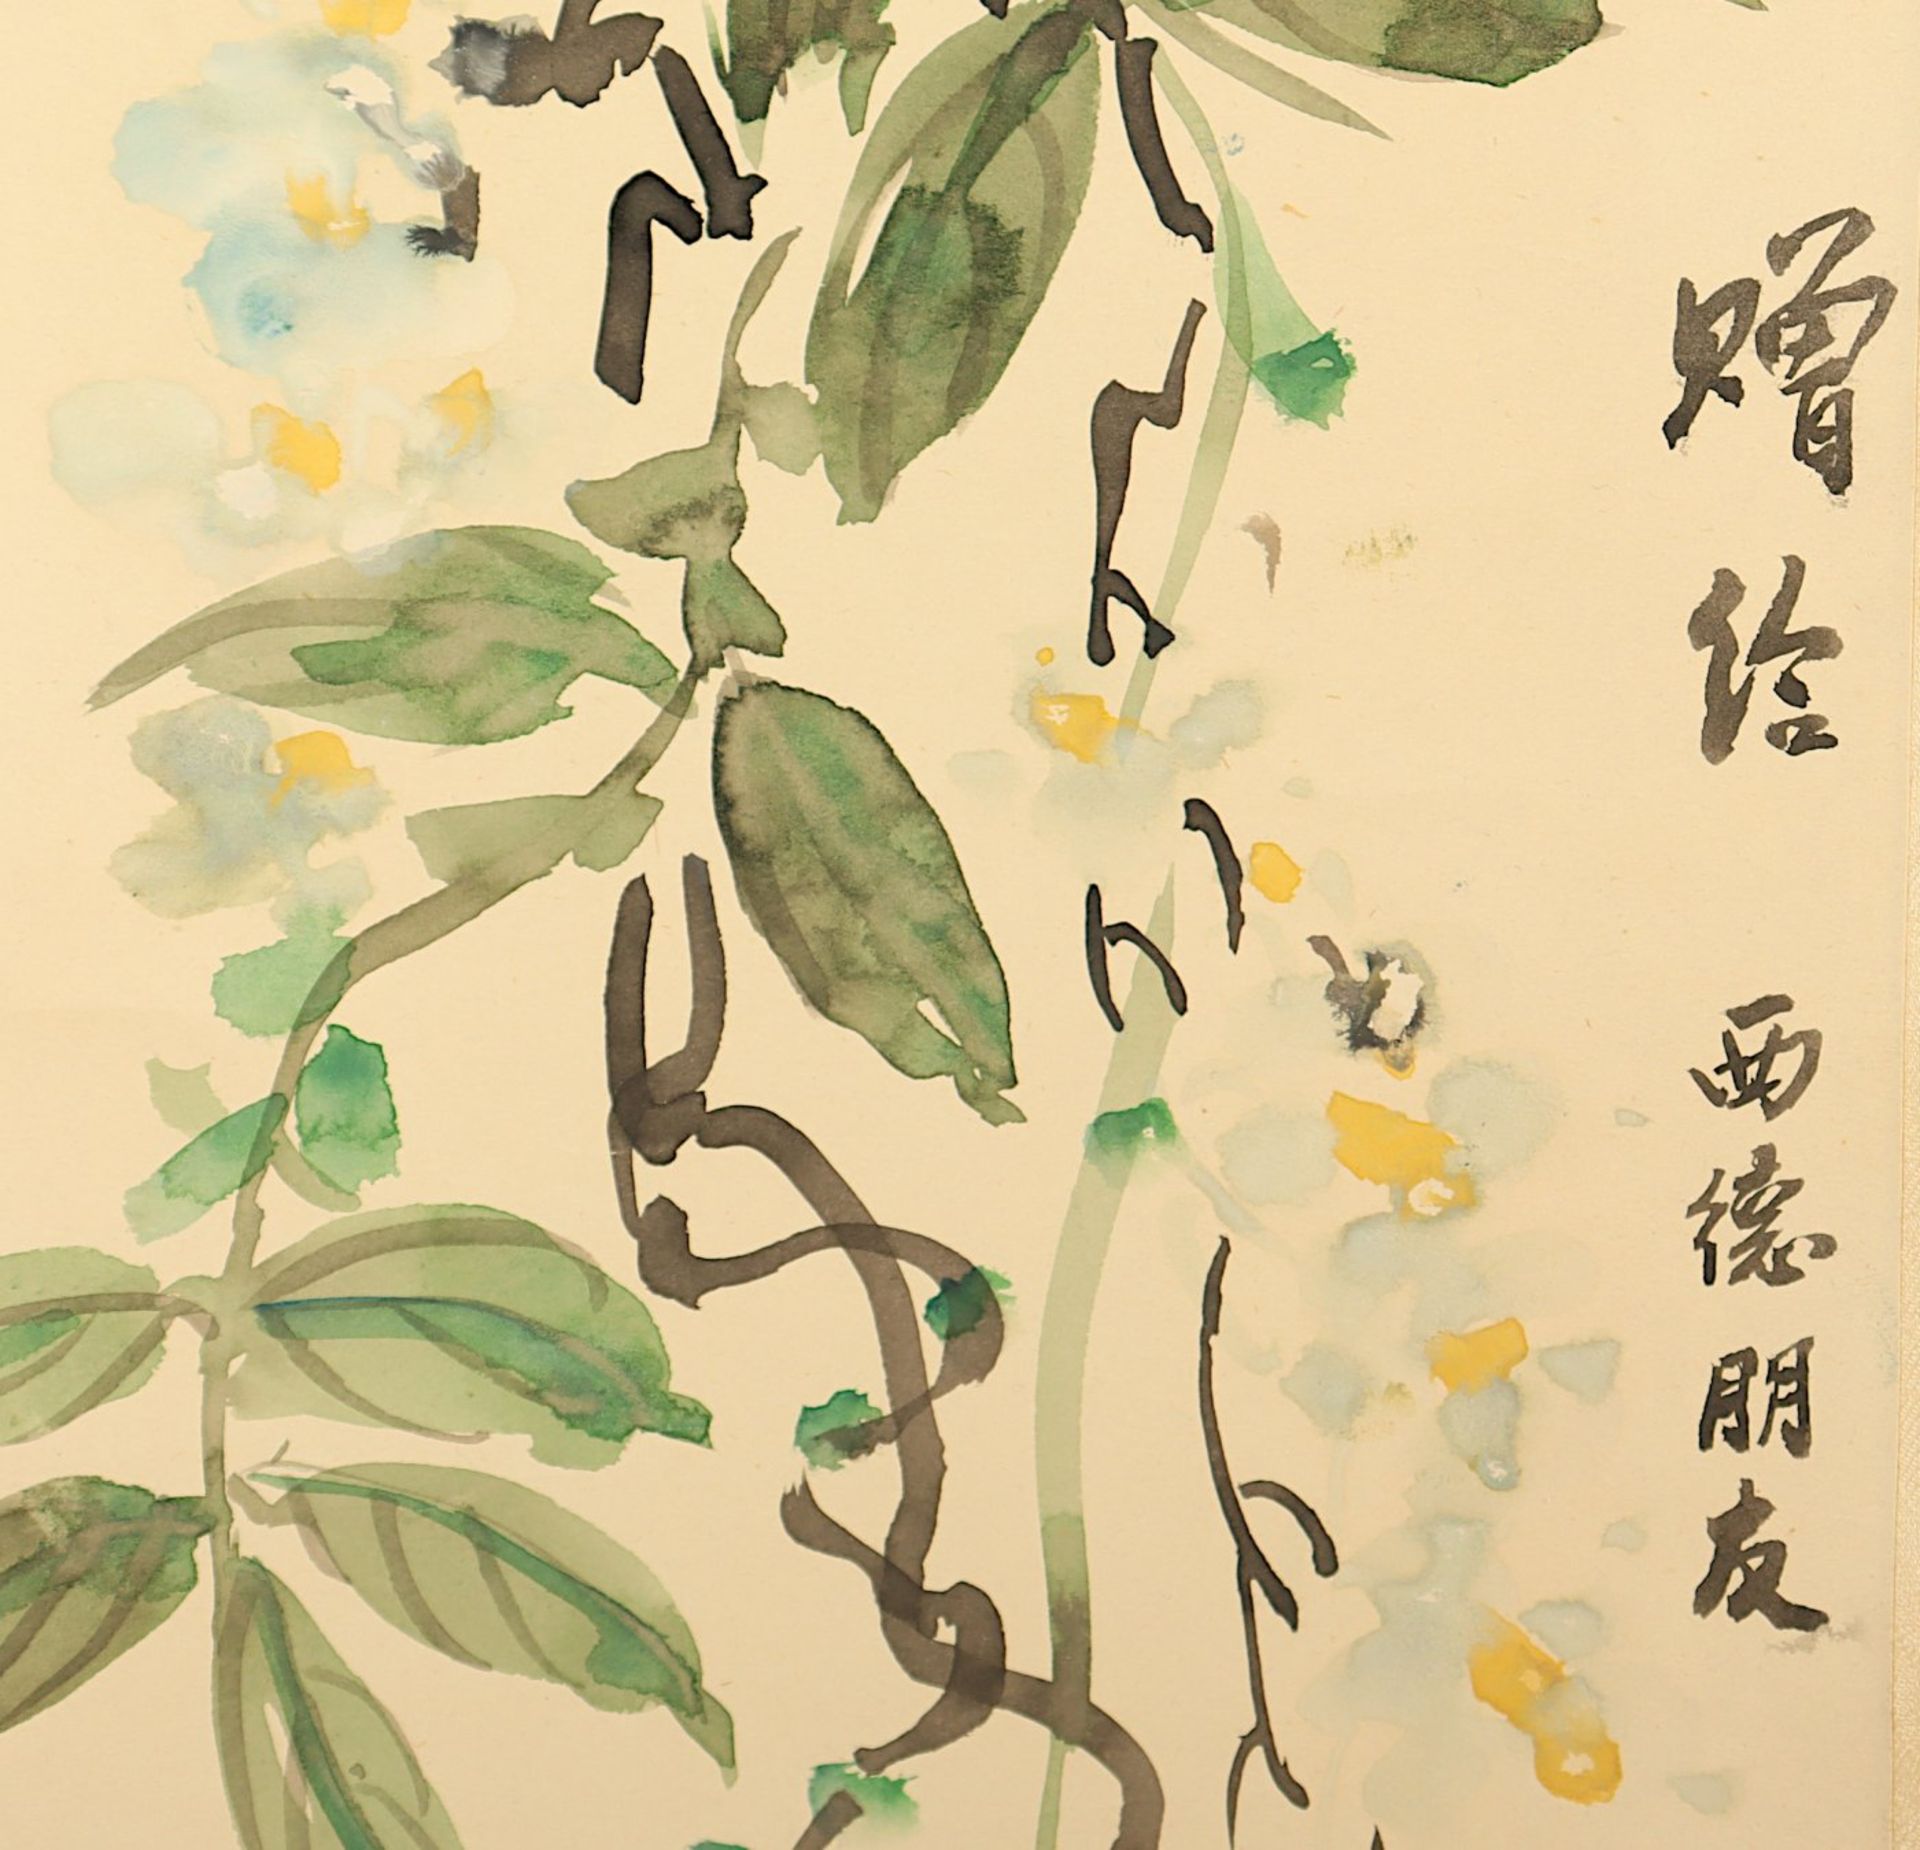 赠给 西德朋友